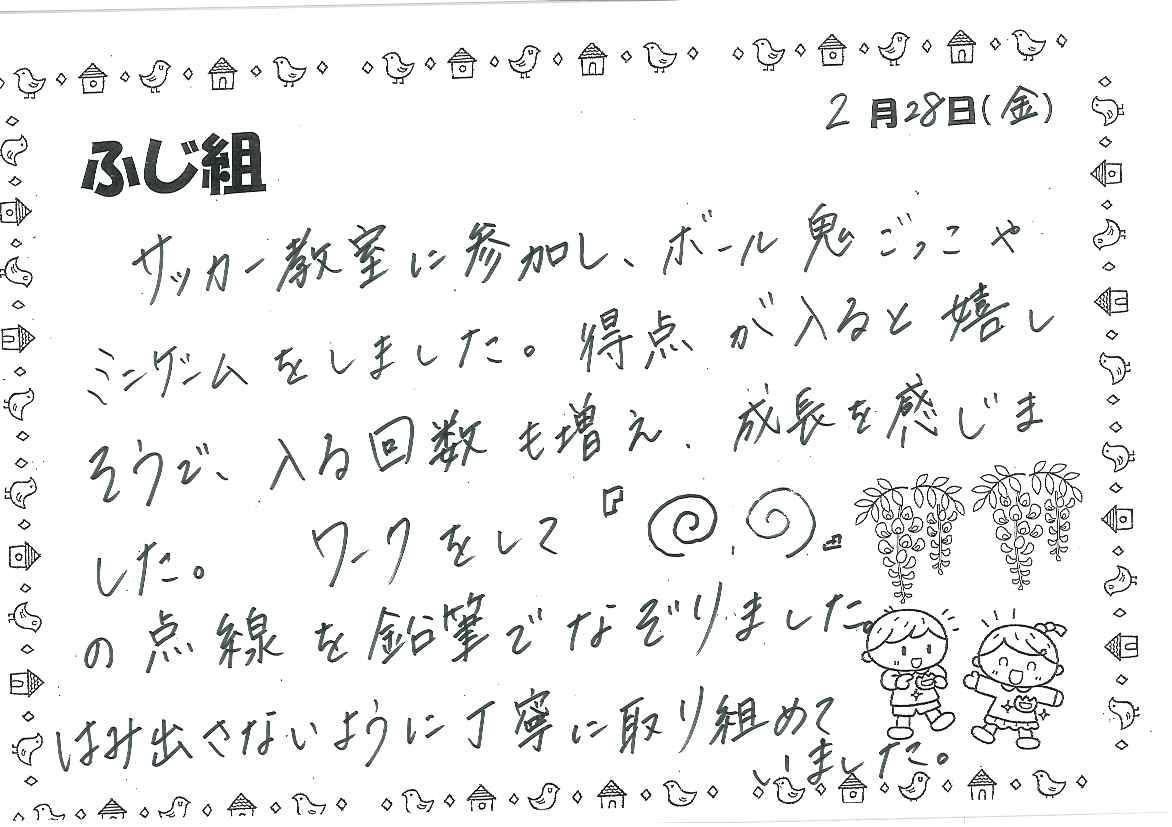 2月28日(金)
ふじ組
サッカー教室に参加し、ボール鬼ごっこや
ミニゲームをしました。得点が入ると嬉し
そうで、入る回数も増え、成長を感じま
した。 ワークをして『 、 』
の点線を鉛筆でなぞりました。
はみ出さないように丁寧に取り組めて
いました。